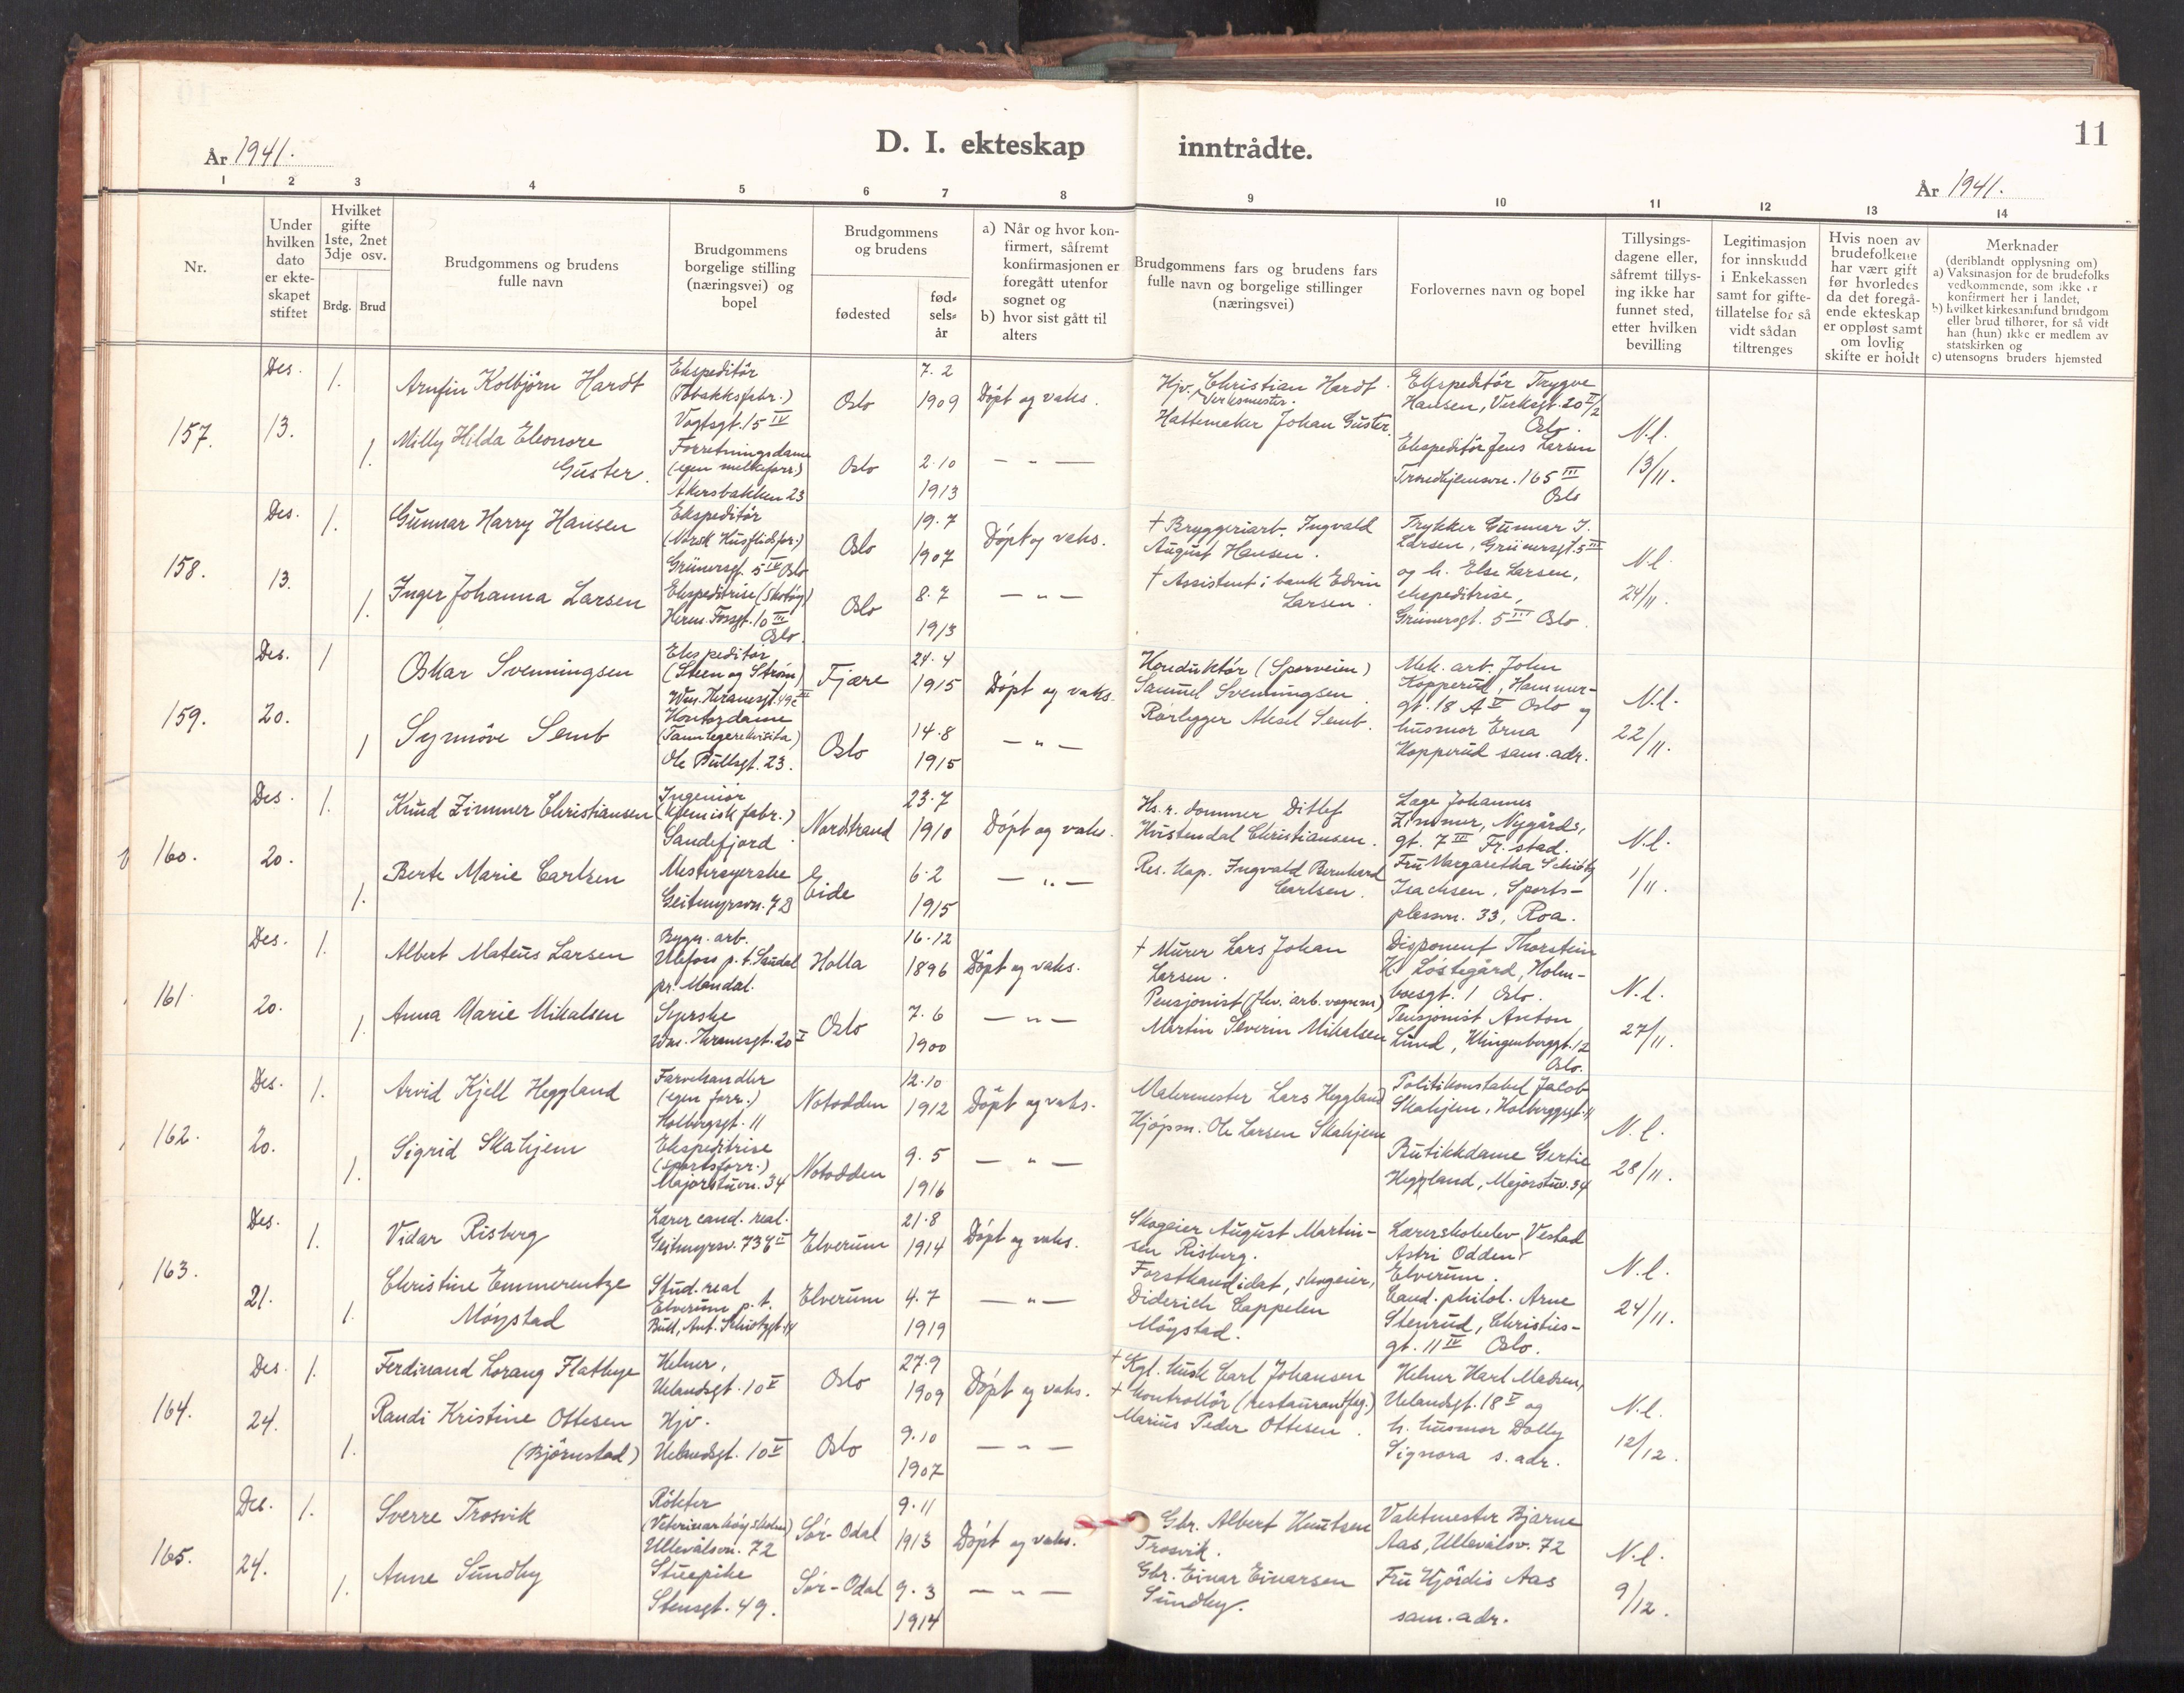 11
D. I. ekteskap inntrådte.
År 1941.
År 1941.
1 2 3 4 5 6 7 8 9 10 11 12 13 14
Nr.
Under hvilken dato er ekteskapet stiftet
Hvilket gifte 1ste, 2net 3dje osv.
Brdg. Brud
Brudgommens og brudens fulle navn
Brudgommens borgelige stilling (næringsvei) og bopel
Brudgommens og brudens
fødested
fødselsår
a) Når og hvor konfirmert, såfremt konfirmasjonen er foregått utenfor sognet og
b) hvor sist gått til alters
Brudgommens fars og brudens fars fulle navn og borgelige stillinger (næringsvei)
Forlovernes navn og bopel
Tillysingsdagene eller, såfremt tillysing ikke har funnet sted, etter hvilken bevilling
Legitimasjon for innskudd i Enkekassen samt for giftetillatelse for så vidt sådan tiltrenges
Hvis noen av brudefolkene har vært gift før hvorledes da det foregående ekteskap er oppløst samt om lovlig skifte er holdt
Merknader (deriblandt opplysning om)
a) Vaksinasjon for de brudefolks vedkommende, som ikke er konfirmert her i landet,
b) hvilket kirkesamfund brudgom eller brud tilhører, for så vidt han (hun) ikke er medlem av statskirken og
c) utensogns bruders hjemsted
157.
Des. 13.
1.
Arnfin Kolbjørn Hardt
Ekspeditør
(Tobakksfabr.)
Vogtsgt. 15 IV
Oslo
7.2
1909
Døpt og vaks.
Hjv. Christian Hardt.
Verksmester.
Ekspeditør Trygve
Hansen, Verksgt. 20 II/2
Oslo.
1.
Milly Hilda Eleonore
Guster.
Forretningsdame
(egen melkeforr.)
Akersbakken 23
Oslo
2.10
1913
— " —
Hattemaker Johan Guster.
Ekspeditør Jens Larsen
Trondhjemsvn. 165 III
Oslo
N.l.
13/11.
158.
Des. 13.
1.
Gunnar Harry Hansen
Ekspeditør
(Norsk Husflidsfor.)
Grünersgt. 5 IV Oslo
Oslo
19.7
1907
Døpt og vaks.
† Bryggeriarb. Ingvald
August Hansen.
Trykker Gunnar J.
Larsen, Grünersgt. 5 III
1.
Inger Johanna Larsen
Ekspeditrise (Skotøy)
Herm. Fossgt. 10 III
Oslo.
Oslo
8.7
1913
— " —
† Assistent i bank Edvin
Larsen.
og h. Else Larsen,
ekspeditrise,
Grünersgt. 5 III Oslo.
N.l.
24/11.
159.
Des. 20.
1
Oskar Svenningsen
Ekspeditør
(Steen og Strøm)
Wm. Thranesgt. 49c III
Fjære
24.4
1915
Døpt og vaks.
Konduktør (Sporveien)
Samuel Svenningsen.
Mek. arb. John
Kopperud, Hammer-
gt. 18 A V Oslo og
1
Synnöve Semb
Kontordame
(Tannlegerekvisita)
Ole Bullsgt. 23.
Oslo
14.8
1915
— " —
Rørlegger Aksel Semb.
husmor Erna
Kopperud sam. adr.
N.l.
22/11.
160.
Des. 20.
1.
Knud Zimmer Christiansen
Ingeniør
(kjemisk fabr.)
Sandefjord
Nordstrand
23.7
1910
Døpt og vaks.
Hs. r. dommer Ditlef
Hvistendal Christiansen.
Læge Johannes
Zimmer, Nygårds,
gt. 7 III Fr.stad.
1.
Berte Marie Carlsen
Mestersyerske
Geitmyrsvn. 7 B
Eide
6.2
1915
— " —
Res. Kap. Ingvald Bernhard
Carlsen.
Fru Margaretha Schiötz
Isachsen, Sports-
plassvn. 33, Roa.
N.l.
1/11.
161.
Des. 20.
1.
Albert Mateus Larsen
Bygn. arb.
Ulefoss p.t. Laudal
pr. Mandal.
Holla
16.12
1896
Døpt og vaks.
† Murer Lars Johan
Larsen.
Disponent Thorstein
K. Løstegård, Holm-
boesgt. 1 Oslo.
1.
Anna Marie Mikalsen
Syerske
Wm. Thranesgt. 20 I
Oslo
7.6
1900
— " —
Pensjonist
Martin Severin Mikalsen
Pensjonist Anton
Lund, Klingenberggt. 12
Oslo.
N.l.
27/11.
162.
Des. 20.
1.
Arvid Kjell Heggland
Farvehandler
(egen forr.)
Holbergsgt. 11
Notodden
12.10
1912
Døpt og vaks.
Malermester Lars Heggland
Politikonstabel Jacob
Skahjem, Holberggsgt. 11
1.
Sigrid Skahjem
Ekspeditrise
(sportsforr.)
Majorstuvn. 34
Notodden
9.5
1916
— " —
Kjøpm. Ole Larsen Skahjem
Butikkdame Gertie
Heggland, Majorstuv. 34
N.l.
28/11.
163.
Des. 21.
1.
Vidar Risberg
Lærer cand. real.
Geitmyrsv. II
Elverum
21.8
1914
Døpt og vaks.
Skogeier August Martin-
sen Risberg.
Lærerskoleelev Vestad
Astri Odden
Elverum.
1.
Christine Emmerentze
Møystad
Stud. real
Elverum p.t.
Bull, Ant. Schiøtzgt. 14
Elverum
4.7
1919
— " —
Forstkandidat, skogeier,
Diderich Cappelen
Møystad.
Cand. philol. Arne
Stenrud, Christies-
gt. 11 IV Oslo.
N.l.
24/11.
164.
Des. 24.
1.
Ferdinand Lorang Flathuge
Kelner,
Uelandsgt. 10 V
Oslo
27.9
1909
Døpt og vaks.
† Kgl. kusk Carl Johansen
Kelner Karl Madsen,
Uelandsgt. 18 V og
1.
Randi Kristine Ottesen
(Bjørnstad)
Hjv.
Uelandsgt. 10 V
Oslo
9.10
1907
— " —
† Kontrollør
Marius Peder Ottesen.
h. husmor Dolly
Signora s. adr.
N.l.
12/12.
165.
Des. 24.
1.
Sverre Trosvik
Røkter
(Veterinærhøyskolen)
Ullevålsvn. 72
Sør-Odal
9.11
1913
Døpt og vaks.
Gbr. Albert Knutsen
Trosvik.
Vaktmester Bjarne
Aas, Ullevålsv. 72
1.
Anne Sundby
Stuepike
Stensgt. 49.
Sør-Odal
9.3
1914
— " —
Gbr. Einar Einarsen
Sundby.
Fru Hjørdis Aas
sam. adr.
N.l.
9/12.